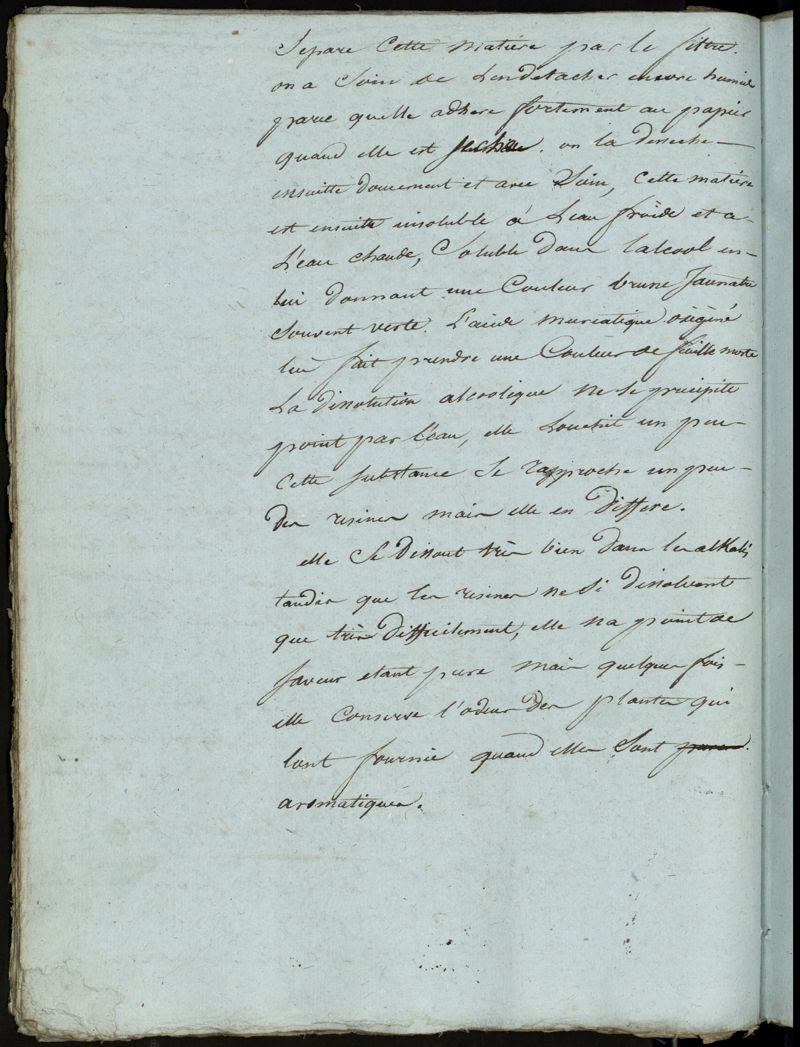 Separe cette matiere par le filtre.
on a soin de L'endetacher encore humide
parce quelle adhere fortement au papier
quand elle est sechée. on la desseche—
ensuitte doucement et avec soin, cette matiére
est ensuite insoluble a L'eau froide et a-
L'eau chaude, Soluble dans lalcool en-
lui donnant une Couleur brune Jaunatre
souvent verte. L'acide muriatique oxigéné
lui fait prendre une Couleur de feuille morte
La dissolution alcoolique ne se precipite
point par l'eau, elle Louchit un peu-
Cette substance se rapproche un peu-
des resines mais elle en differe.
elle se dissout très bien dans les alkalis
tandis que les resines ne si dissolvent
que très difficilement, elle na point de
saveur etant pure mais quelques fois-
elle conserve l'odeur des plantes qui
lont fournie quand elles sont
aromatiques.